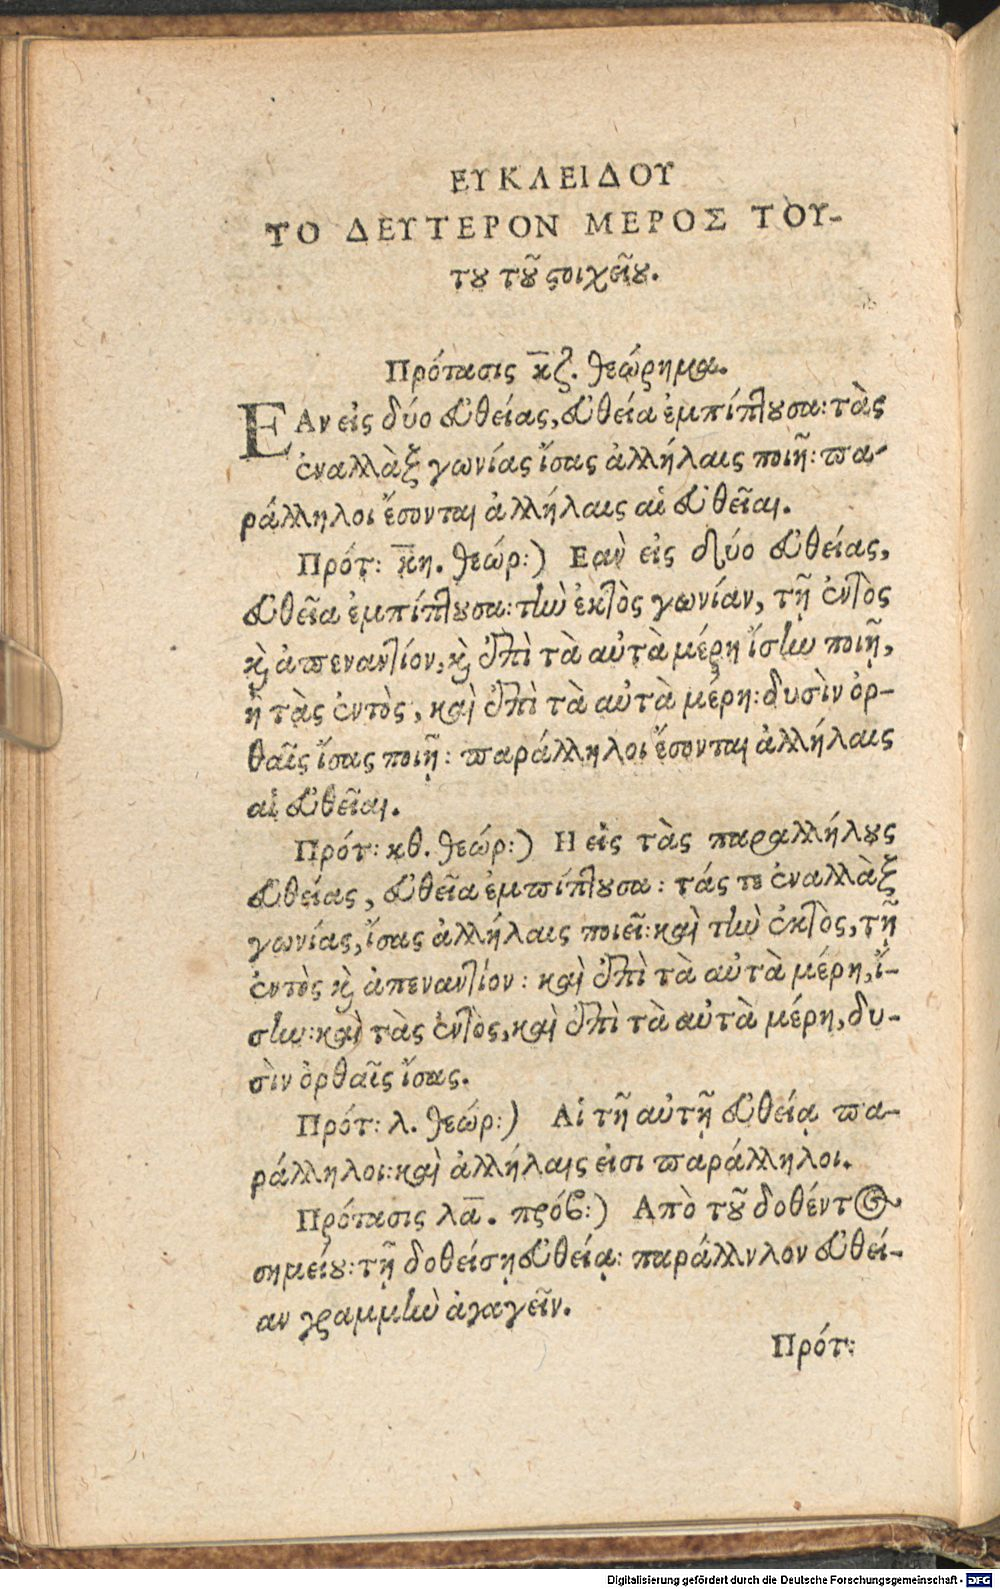 ΕΥΚΛΕΙΔΟΥ
ΤΟ ΔΕΥΤΕΡΟΝ ΜΕΡΟΣ ΤΟΥ-
του τοῦ ϛοιχεῖου.
Πρότασις κζ. θεώρημα.
ΕΑν εἰς δύο εὐθείας, εὐθεία ἐμπίπτουσα: τὰς
ἐναλλὰξ γωνίας ἴσας ἀλλήλαις ποιῇ: πα-
ράλληλοι ἔσονται ἀλλήλαις αἱ εὐθεῖαι.
Πρότ: κη. θεώρ:) Εαν εἰς δύο εὐθείας,
εὐθεῖα ἐμπίπτουσα: τὴν ἐκτὸς γωνίαν, τῇ ἐντὸς
καὶ ἀπεναντίον, καὶ ἐπὶ τὰ αὐτὰ μέρη ἴσην ποιῇ,
ἢ τὰς ἐντὸς, καὶ ἐπὶ τὰ αὐτὰ μέρη: δυσὶν ὀρ-
θαῖς ἴσας ποιῇ: παράλληλοι ἔσονται ἀλλήλαις
αἱ εὐθεῖαι.
Πρότ: κθ. θεώρ:) Η εἰς τὰς παραλλήλους
εὐθείας, εὐθεῖα ἐμπίπτουσα: τάς τε ἐναλλὰξ
γωνίας, ἴσας ἀλλήλαις ποιεῖ: καὶ τὴν ἐκτὸς, τῇ
ἐντὸς καὶ ἀπεναντίον: καὶ ἐπὶ τὰ αὐτὰ μέρη, ἴ-
σην: καὶ τὰς ἐντὸς, καὶ ἐπὶ τὰ αὐτὰ μέρη, δυ-
σὶν ὀρθαῖς ἴσας.
Πρότ: λ. θεώρ:) Αἱ τῇ αὐτῇ εὐθείᾳ πα-
ράλληλοι: καὶ ἀλλήλαις εἰσι παράλληλοι.
Πρότασις λα. πρόβ:) Απὸ τοῦ δοθέντος
σημείου: τῇ δοθείσῃ εὐθείᾳ: παράλληλον εὐθεί-
αν γραμμὴν ἀγαγεῖν.
Πρότ:
Digitalisierung gefördert durch die Deutsche Forschungsgemeinschaft - DFG